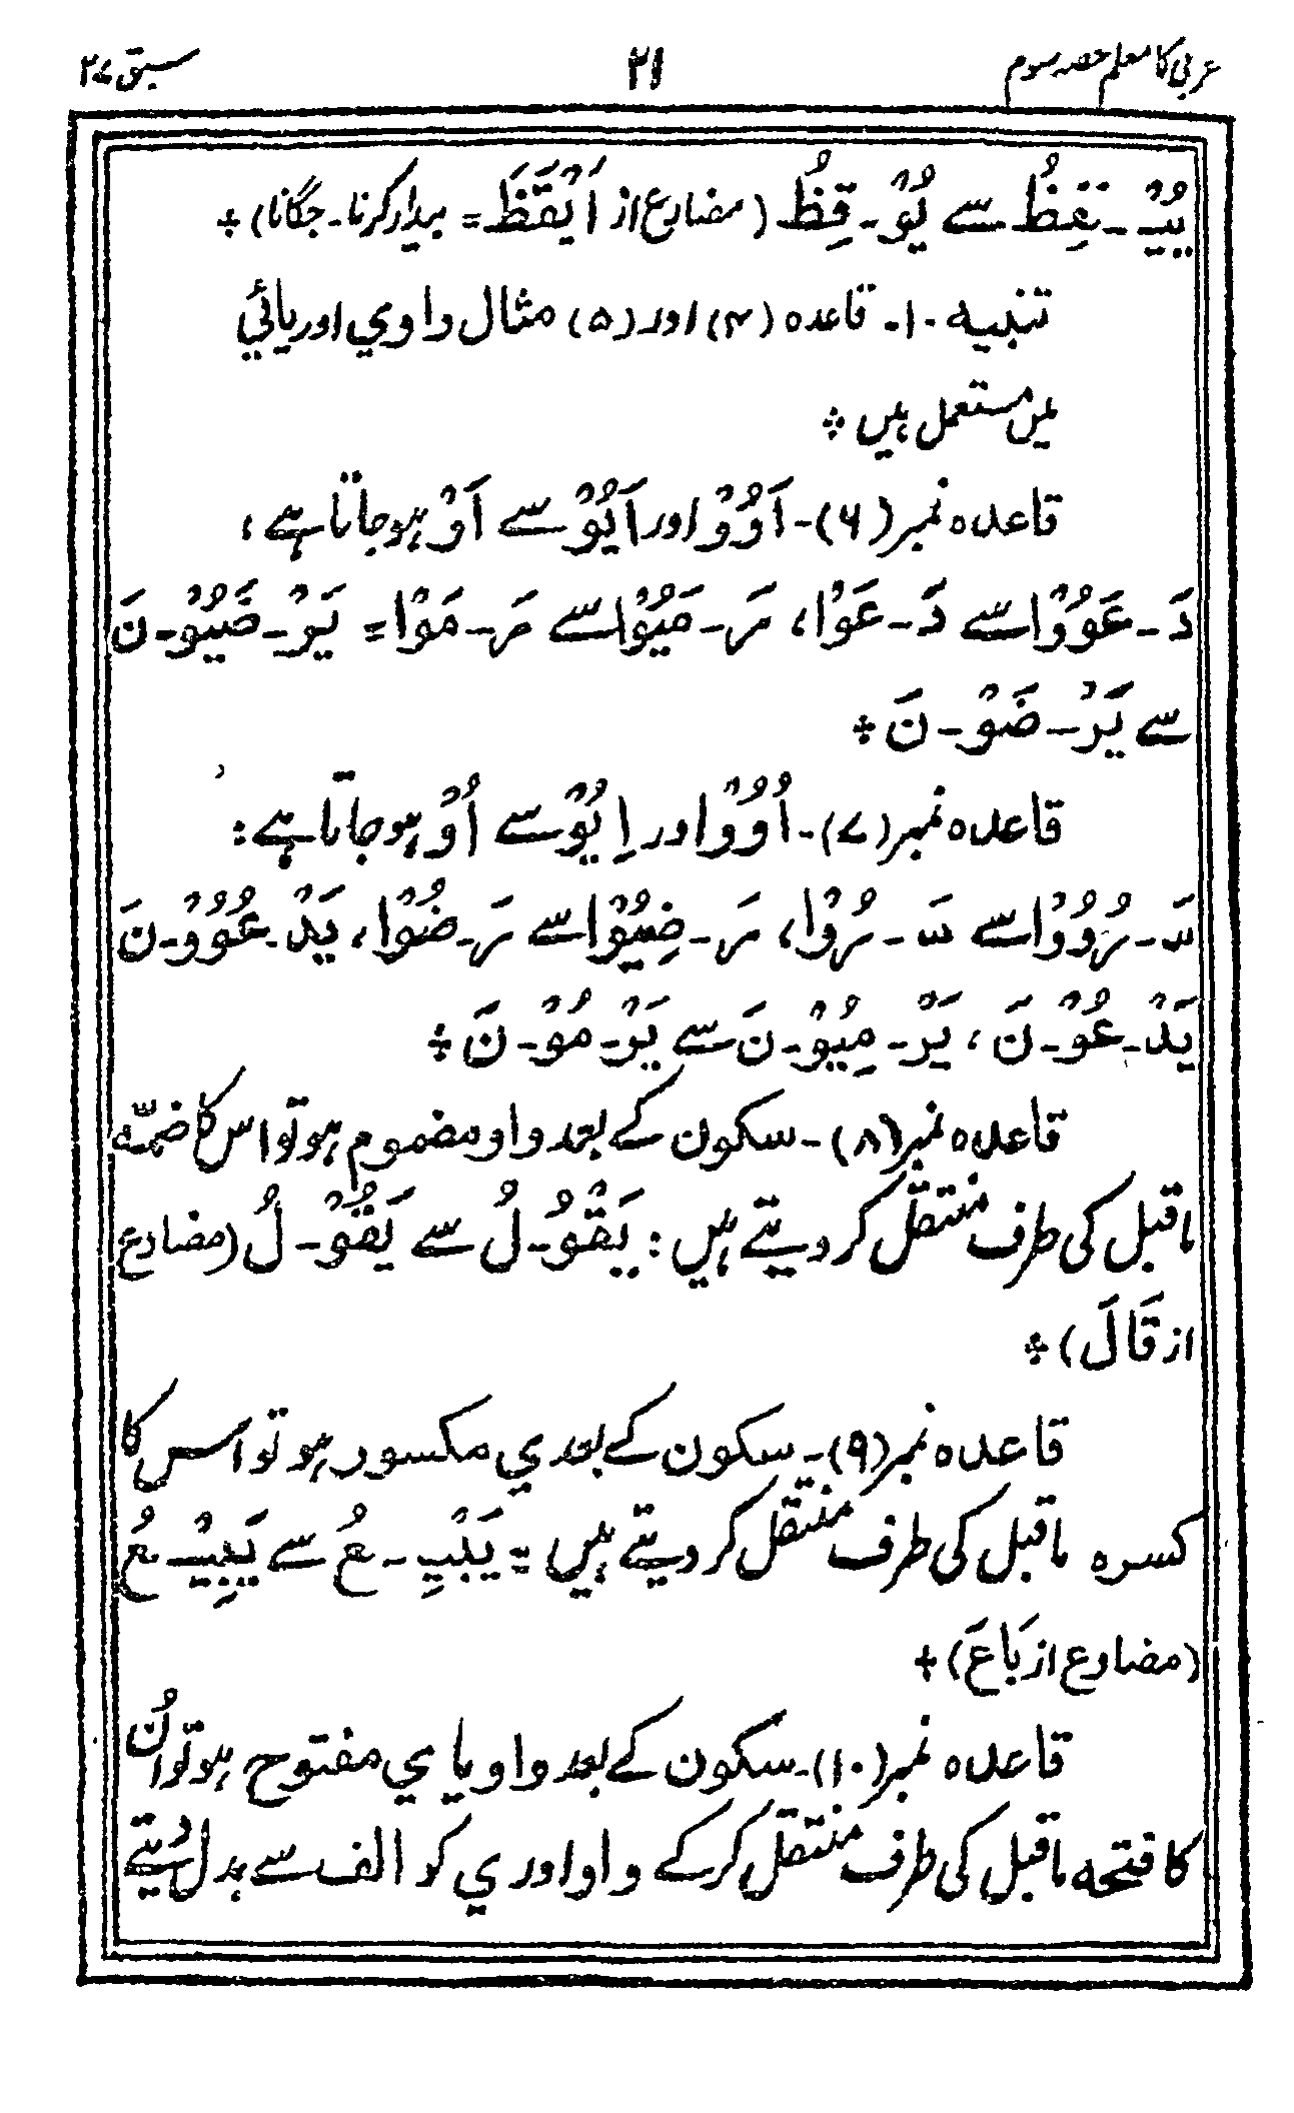 عربی کا معلم حصہ سوم ۲۱ سبق ۲۷
يُيْـ ـقِظُ سے يُوْ ـ قِظُ (مضارع از اَيْقَظَ = بیدار کرنا ـ جگانا) ⁘
تنبیہ ۱۰ ـ قاعدہ (۴) اور (۵) مثال واوي اور يائي
میں مستعمل ہیں ⁘
قاعدہ نمبر (۶) ـ اَوُوْ اور اَيُوْ سے اَوْ ہو جاتا ہے :
دَ ـ عَوُوْا سے دَ ـ عَوْا، رَ ـ مَيُوْا سے رَ ـ مَوْا = يَرْ ـ ضَيُوْ ـ نَ
سے يَرْ ـ ضَوْ ـ نَ ⁘
قاعدہ نمبر (۷) ـ اُوُوْ اور اِيُوْ سے اُوْ ہو جاتا ہے :
سَ ـ رُوُوْا سے سَ ـ رُوْا، رَ ـ ضِيُوْا سے رَ ـ ضُوْا، يَدْ ـ عُوُوْ ـ نَ
يَدْ ـ عُوْ ـ نَ ، يَرْ ـ مِيُوْ ـ نَ سے يَرْ ـ مُوْ ـ نَ ⁘
قاعدہ نمبر (۸) ـ سکون کے بعد واو مضموم ہو تو اس کا ضمّہ
ماقبل کی طرف منتقل کر دیتے ہیں : يَقْوُ ـ لُ سے يَقُوْ ـ لُ (مضارع
از قَالَ) ⁘
قاعدہ نمبر (۹) ـ سکون کے بعد ي مکسور ہو تو اس کا
کسرہ ماقبل کی طرف منتقل کر دیتے ہیں = يَبْيِ ـ عُ سے يَبِيْـ ـعُ
(مضارع از بَاعَ) ⁘
قاعدہ نمبر (۱۰) ـ سکون کے بعد واو یا ي مفتوح ہو تو اُن
کا فتحہ ماقبل کی طرف منتقل کر کے واو اور ي کو الف سے بدل دیتے